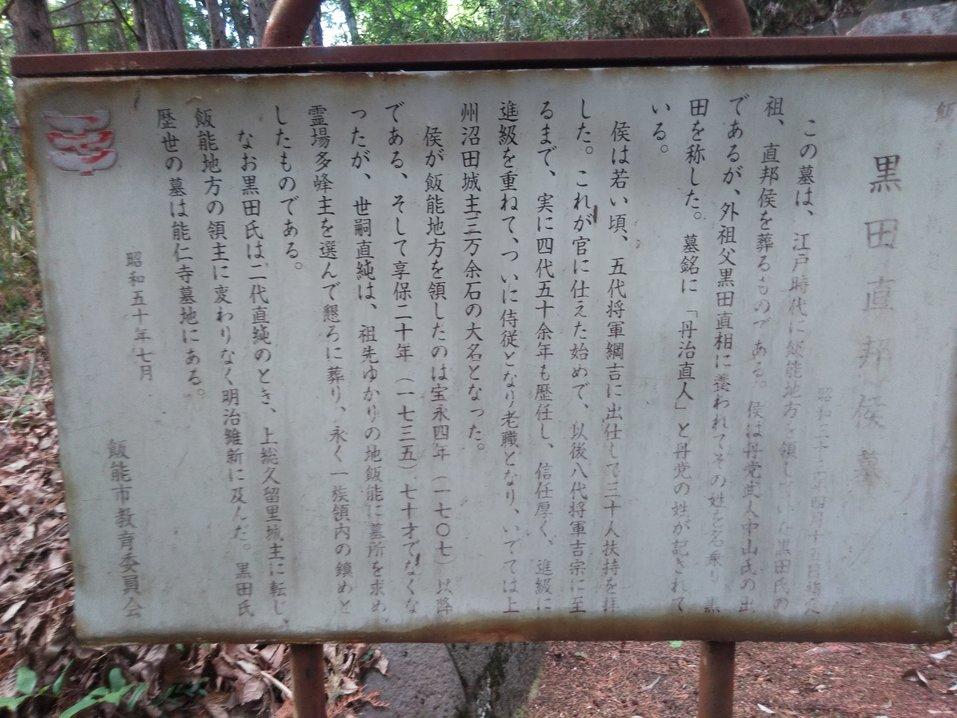 飯
黒田直邦侯墓
昭和三十二年 月十五日指定
この墓は、江戸時代に飯能地方を領していた黒田氏の
祖、直邦侯を葬るものである。侯は丹党武人中山氏の出
であるが、外祖父黒田直相に養われてその姓を名乗り黒
田を称した。墓銘に「丹治直人」と丹党の姓が記されて
いる。
侯は若い頃、五代将軍綱吉に出仕して三十人扶持を拝
した。これが官に仕えた始めで、以後八代将軍吉宗に至
るまで、実に四代五十余年も歴任し、信任厚く、進級に
進級を重ねて、ついに侍従となり老職となり、いでては上
州沼田城主三万余石の大名となった。
侯が飯能地方を領したのは宝永四年(一七〇七)以降
である、そして享保二十年(一七三五)七十才でなくな
ったが、世嗣直純は、祖先ゆかりの地飯能に墓所を求め、
霊場多峰主を選んで懇ろに葬り、永く一族領内の鎮めと
したものである。
なお黒田氏は、二代直純のとき、上総久留里城主に転じ、
飯能地方の領主に変わりなく明治維新に及んだ。黒田氏
歴世の墓は能仁寺墓地にある。
昭和五十年七月
飯能市教育委員会